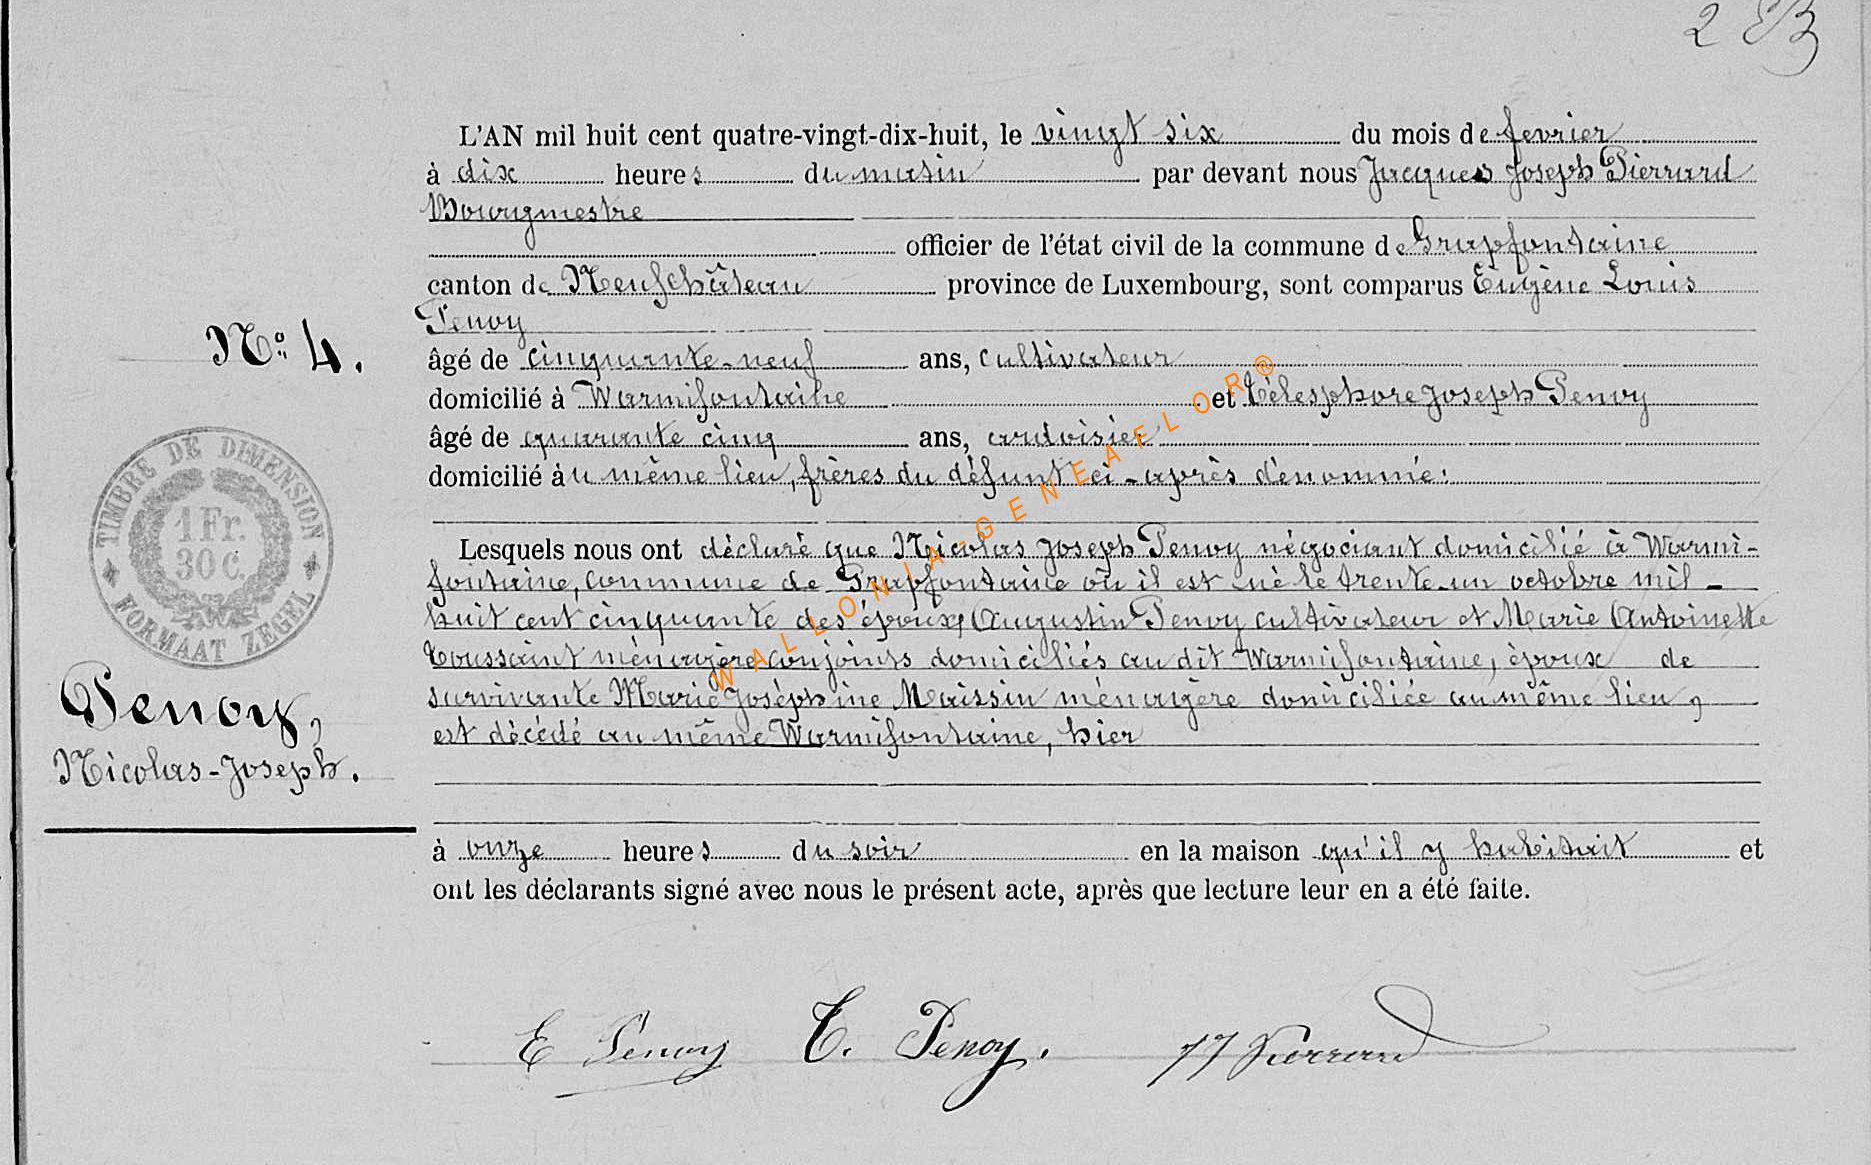 2 83
L'AN mil huit cent quatre-vingt-dix-huit, le vingt six du mois de fevrier
à dix heures du matin par devant nous Jacques Joseph Pierrard
Bourgmestre
officier de l'état civil de la commune de Grapfontaine
canton de Neufchâteau province de Luxembourg, sont comparus Eugène Louis
Penoy
N° 4.
âgé de cinquante-neuf ans, cultivateur
domicilié à Warmifontaine et Télesphore Joseph Penoy
âgé de quarante cinq ans, ardoisier
domicilié au même lieu, frères du défunt ci-après dénommé:
TIMBRE DE DIMENSION
1 Fr.
30 C.
FORMAAT ZEGEL
Lesquels nous ont déclaré que Nicolas Joseph Penoy négociant domicilié à Warmi-
fontaine, commune de Grapfontaine où il est né le trente-un octobre mil-
huit cent cinquante des époux Augustin Penoy cultivateur et Marie Antoinette
Toussaint ménagère conjoints domiciliés au dit Warmifontaine, époux de
survivante Marie Joséphine Maissin ménagère domiciliée au même lieu,
est décédé au même Warmifontaine, hier
Penoy,
Nicolas-Joseph.
à onze heures du soir en la maison qu'il y habitait et
ont les déclarants signé avec nous le présent acte, après que lecture leur en a été faite.
E Penoy T. Penoy. JJ Pierrard
WALLONIA-GENEAFELOR®